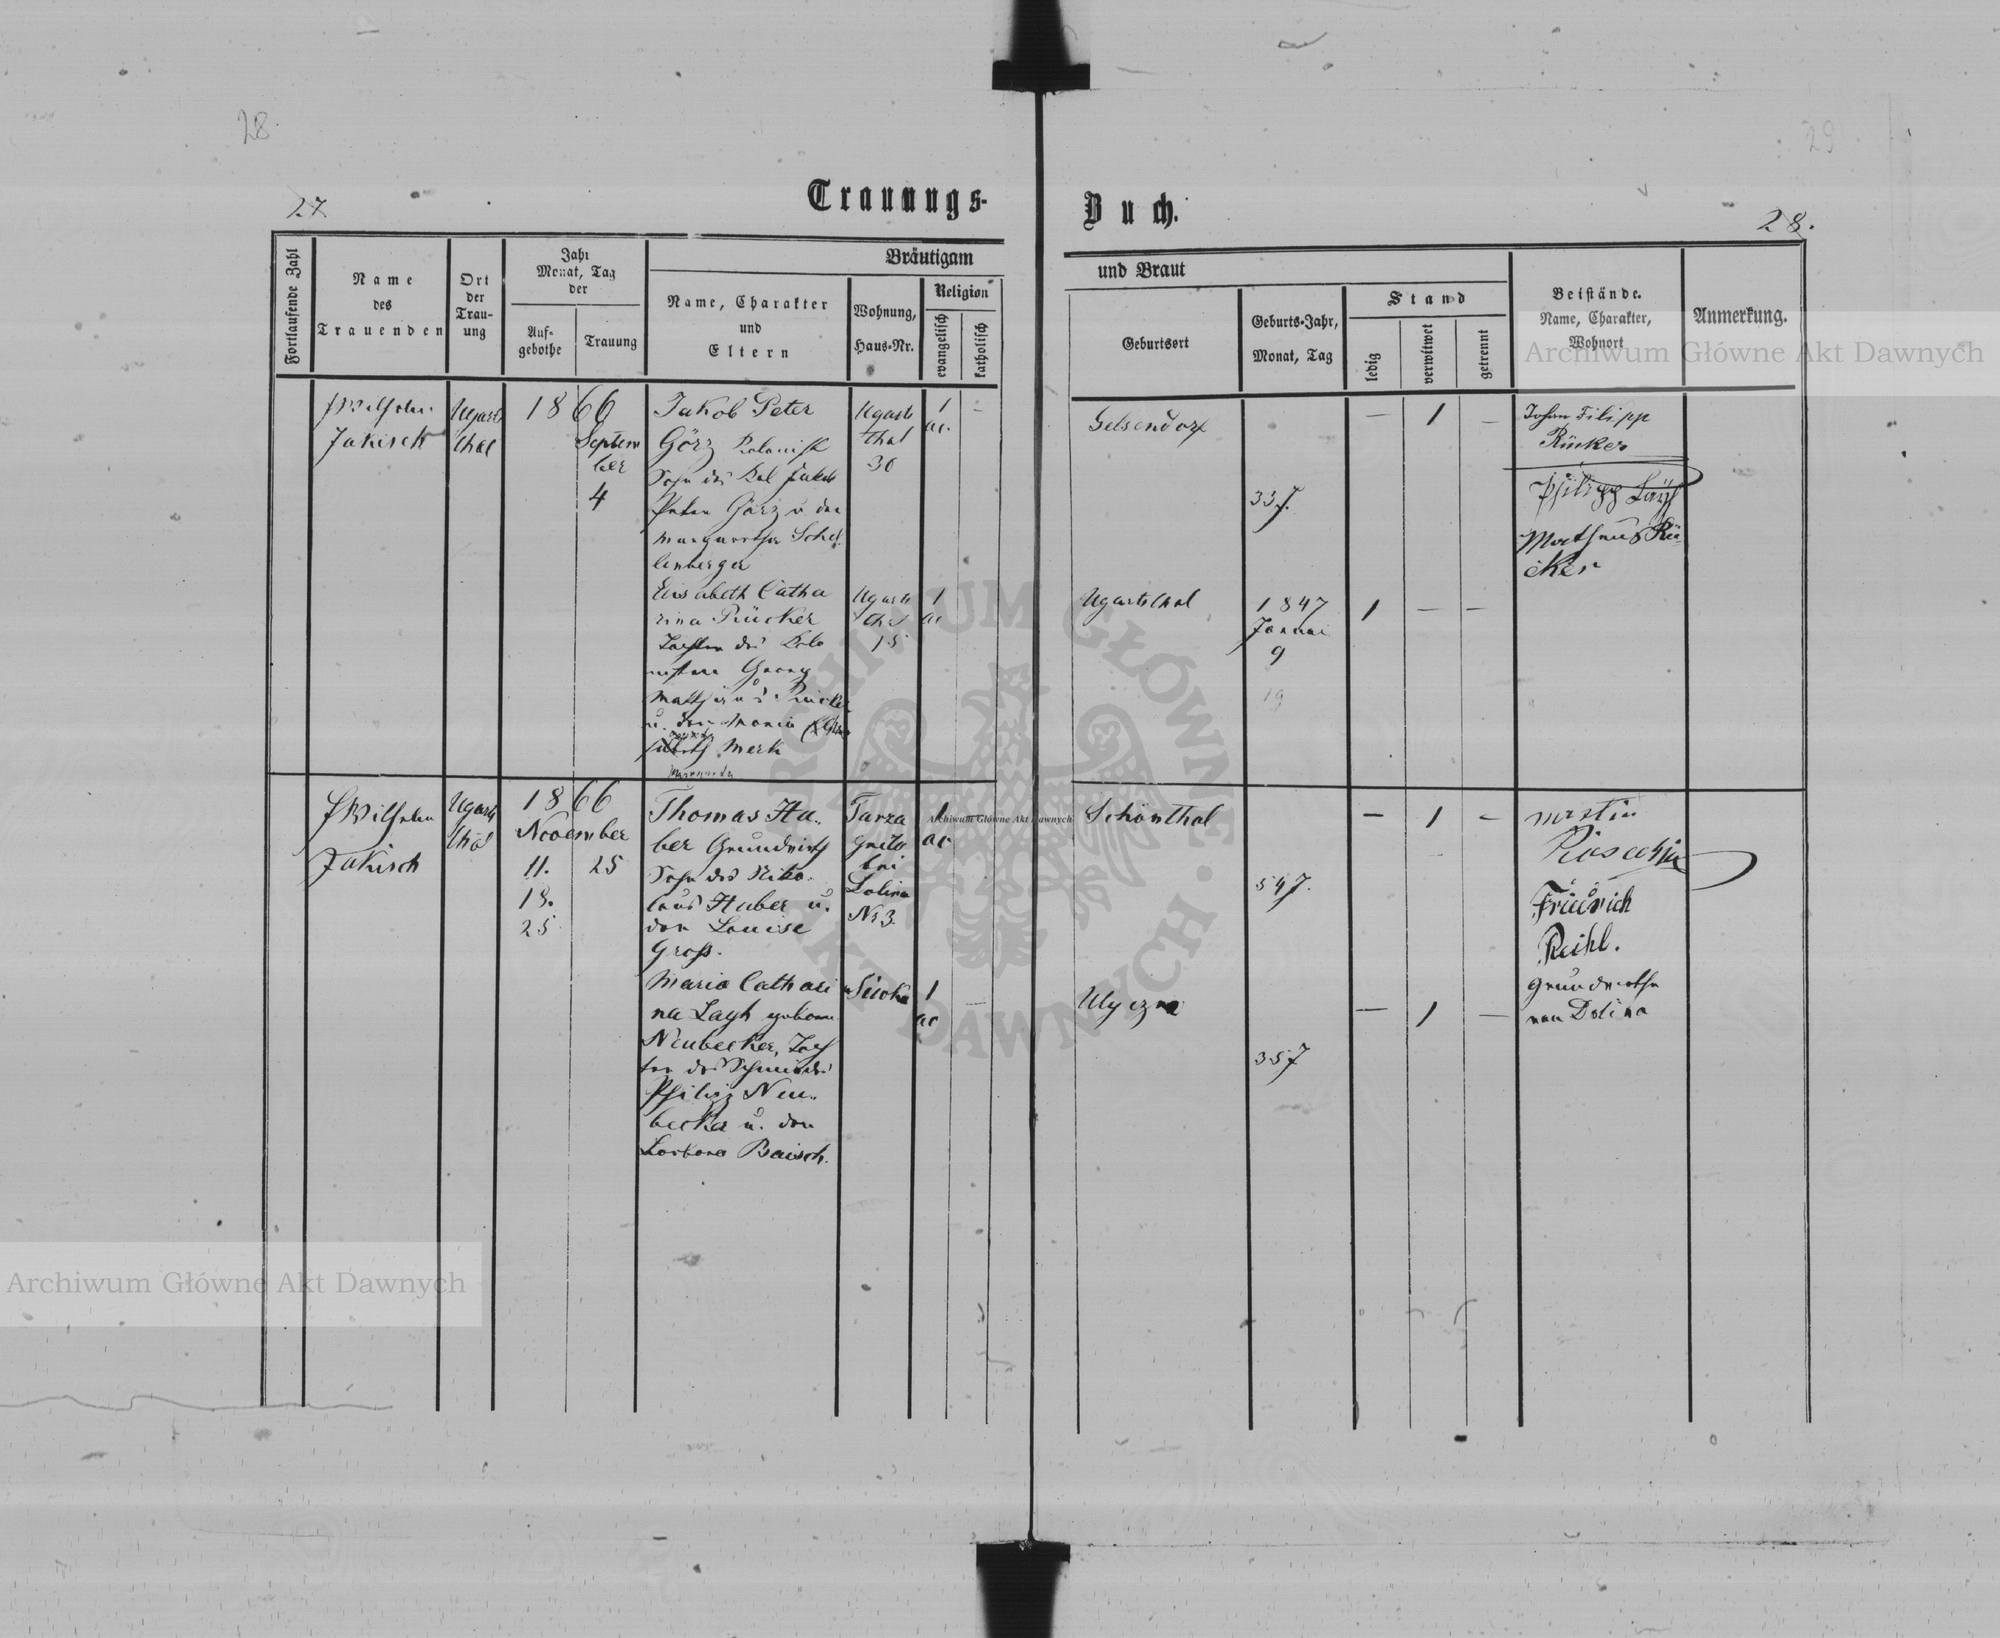 28
29
Trauungs-
Buch.
27
28.
Fortlaufende Zahl
Name
des
Trauenden
Ort
der
Trau-
ung
Jahr
Monat, Tag
der
Auf-
gebothe
Trauung
Bräutigam
Name, Charakter
und
Eltern
Wohnung,
Haus-Nr.
Religion
evangelisch
katholisch
und Braut
Geburtsort
Geburts-Jahr,
Monat, Tag
Stand
ledig
verwitwet
getrennt
Beistände.
Name, Charakter,
Wohnort
Anmerkung.
Wilhelm
Jakisch
Ugarts
thal
1866
Septem
ber
4
Jakob Peter
Görz Kolonist
Sohn des Kol Jakob
Peter Görz u der
Margaretha Schel
lenberger
Ugarts
thal
30
1
ac.
–
Gelsendorf
33 J.
– 1 –
Johan Filipp
Rücker
Philipp Layh
Matheus Rü-
cker
Elisabeth Catha
rina Rücker
Tochter des Kolo
nisten Georg
Mathäus Rücker
u. der Maria
Merk
Margaretha
Ugarts
thal
15
1
ac
Ugartsthal
1847
Januar
9
19
1 – –
Wilhelm
Jakisch
Ugarts
thal
1866
November
11. 25
18.
25
Thomas Hu-
ber Grundwirth
Sohn des Niko-
laus Huber u.
der Louise
Groß.
Turza
bei
Dolina
Nr 3.
1
ac
Schönthal
54 J.
– 1 –
Martin
Friedrich
Reihl.
Grundwirthe
von Dolina
Maria Cathari
na Layh geborne
Neubecker, Toch
ter des Schmiedes
Philipp Neu-
becker u. der
Barbara Baisch.
1
ac
–
Ulyczno
35 J
– 1 –
Archiwum Główne Akt Dawnych
Archiwum Główne Akt Dawnych
Archiwum Główne Akt Dawnych
ARCHIWUM GŁÓWNE · AKT DAWNYCH ·